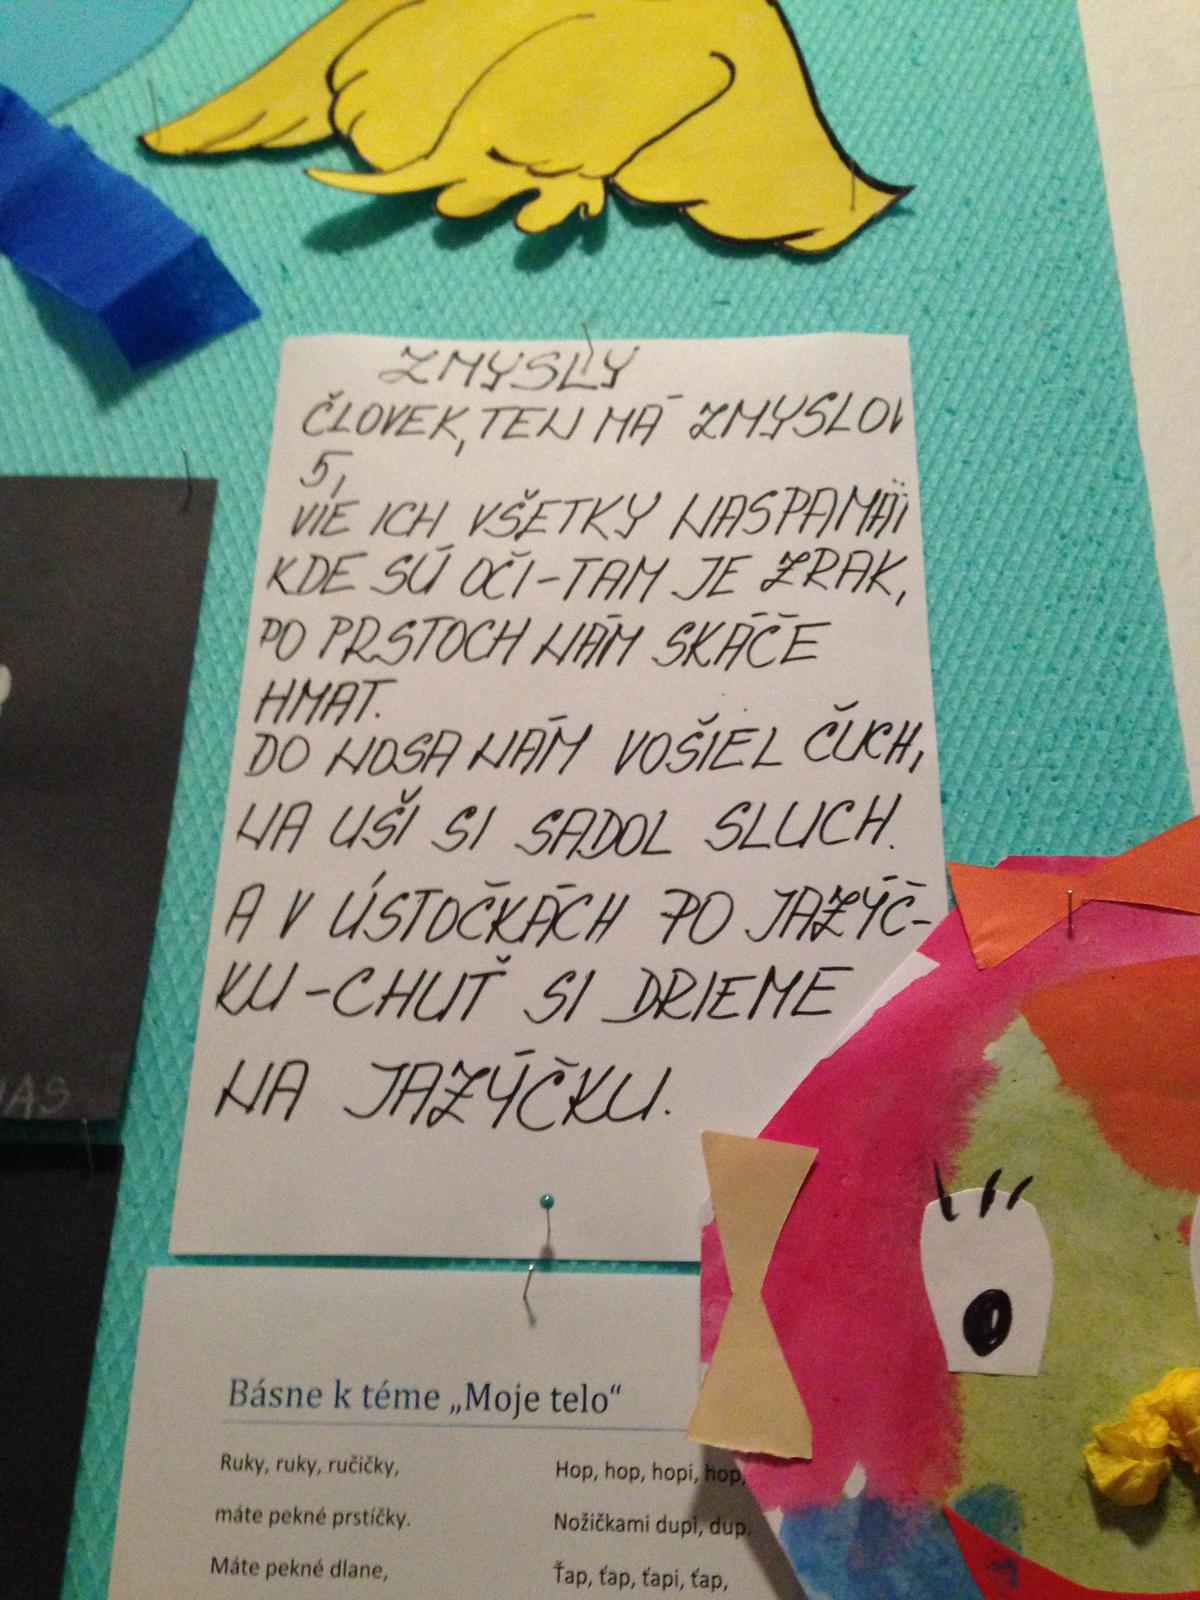 ZMYSLY
ČLOVEK, TEN MÁ ZMYSLOV
5,
VIE ICH VŠETKY NASPAMÄŤ
KDE SÚ OČI-TAM JE ZRAK,
PO PRSTOCH NÁM SKÁČE
HMAT.
DO NOSA NÁM VOŠIEL ČUCH,
NA UŠI SI SADOL SLUCH.
A V ÚSTOČKÁCH PO JAZÝČ-
KU-CHUŤ SI DRIEME
NA JAZÝČKU.
Básne k téme „Moje telo“
Ruky, ruky, ručičky,
máte pekné prstíčky.
Máte pekné dlane,
Hop, hop, hopi, hop,
Nožičkami dupi, dup.
Ťap, ťap, ťapi, ťap,